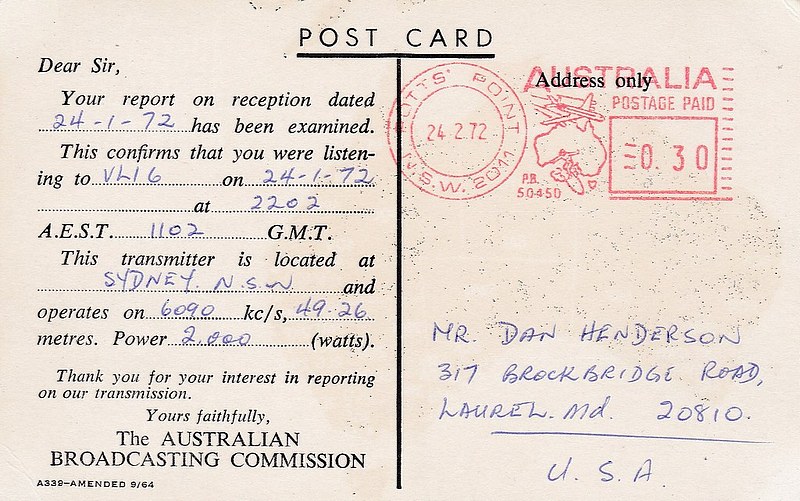 POST CARD
Dear Sir,
Your report on reception dated
24-1-72 has been examined.
This confirms that you were listen-
ing to VLI6 on 24-1-72
at 2202
A.E.S.T. 1102 G.M.T.
This transmitter is located at
SYDNEY. N.S.W and
operates on 6090 kc/s, 49.26
metres. Power 2,000 (watts).
Thank you for your interest in reporting
on our transmission.
Yours faithfully,
The AUSTRALIAN
BROADCASTING COMMISSION
A339–AMENDED 9/64
POTTS' POINT
24.2.72
N.S.W. 2011
AUSTRALIA
Address only
POSTAGE PAID
0.30
P.B.
50450
MR. DAN HENDERSON
317 BROCKBRIDGE ROAD,
LAUREL. Md. 20810.
U.S.A.